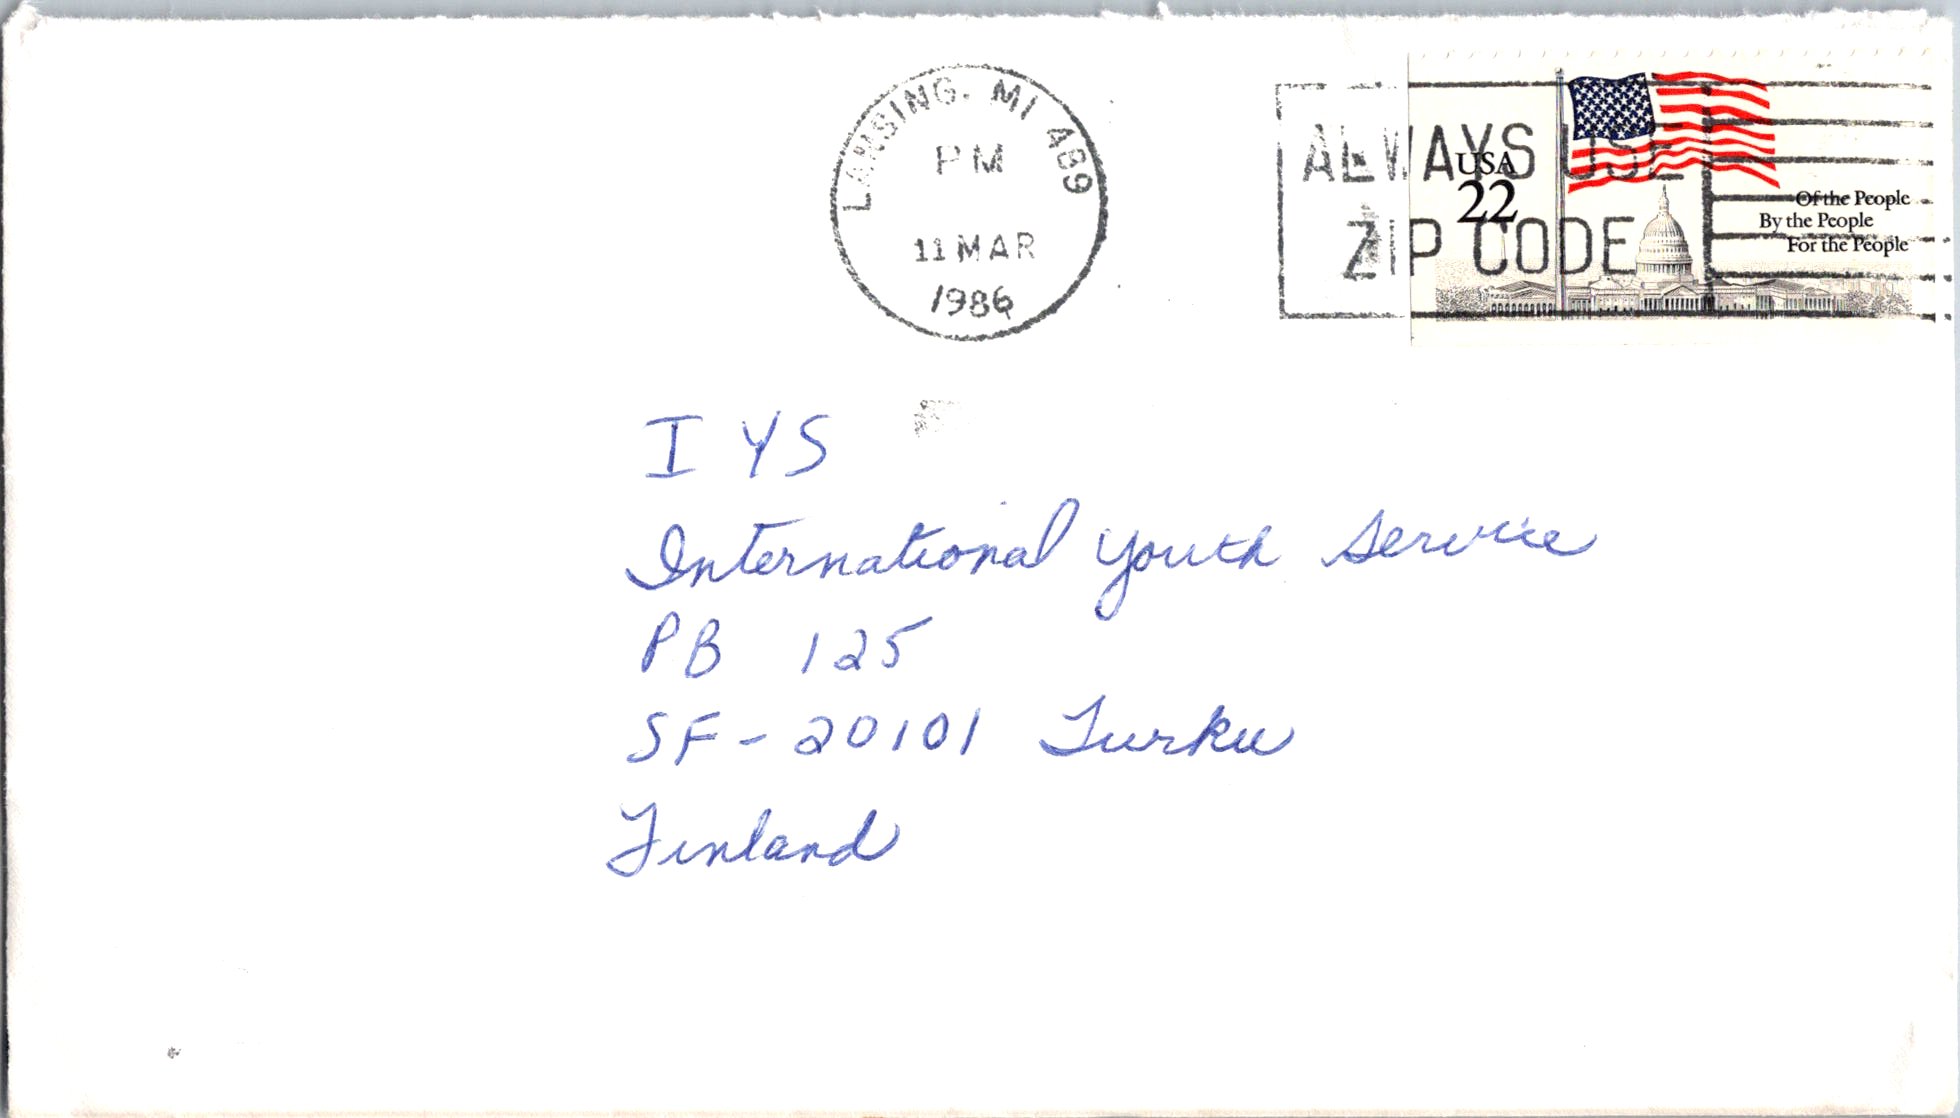 LANSING, MI 489
PM
11 MAR
1986
ALWAYS USE
ZIP CODE
USA
22
Of the People
By the People
For the People
I Y S
International Youth Service
PB 125
SF - 20101 Turku
Finland